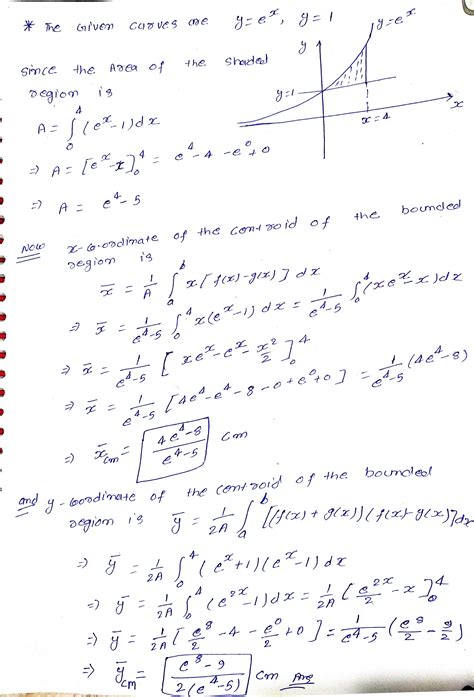 * The Given curves are y = e^x, y = 1
y
y = e^x
since the Area of the shaded
region is
y=1
x
x = 4
A = ∫_0^4 (e^x - 1) dx
⇒ A = [e^x - x]_0^4 = e^4 - 4 - e^0 + 0
⇒ A = e^4 - 5
Now x-co-ordinate of the centroid of the bounded
region is
x̄ = 1/A ∫_a^b x [f(x) - g(x)] dx
⇒ x̄ = 1/(e^4-5) ∫_0^4 x(e^x - 1) dx = 1/(e^4-5) ∫_0^4 (xe^x - x) dx
⇒ x̄ = 1/(e^4-5) [xe^x - e^x - x^2/2]_0^4
⇒ x̄ = 1/(e^4-5) [4e^4 - e^4 - 8 - 0 + e^0 + 0] = 1/(e^4-5) (4e^4 - 8)
⇒ x̄_cm = (4e^4 - 8)/(e^4 - 5) cm
and y-coordinate of the centroid of the bounded
region is ȳ = 1/2A ∫_a^b [(f(x) + g(x)) (f(x) - g(x)] dx
⇒ ȳ = 1/2A ∫_0^4 (e^x + 1)(e^x - 1) dx
⇒ ȳ = 1/2A ∫_0^4 (e^2x - 1) dx = 1/2A [e^2x/2 - x]_0^4
⇒ ȳ = 1/2A [e^8/2 - 4 - e^0/2 + 0] = 1/(e^4-5) (e^8/2 - 9/2)
⇒ ȳ_cm = (e^8 - 9)/(2(e^4 - 5)) cm Ans